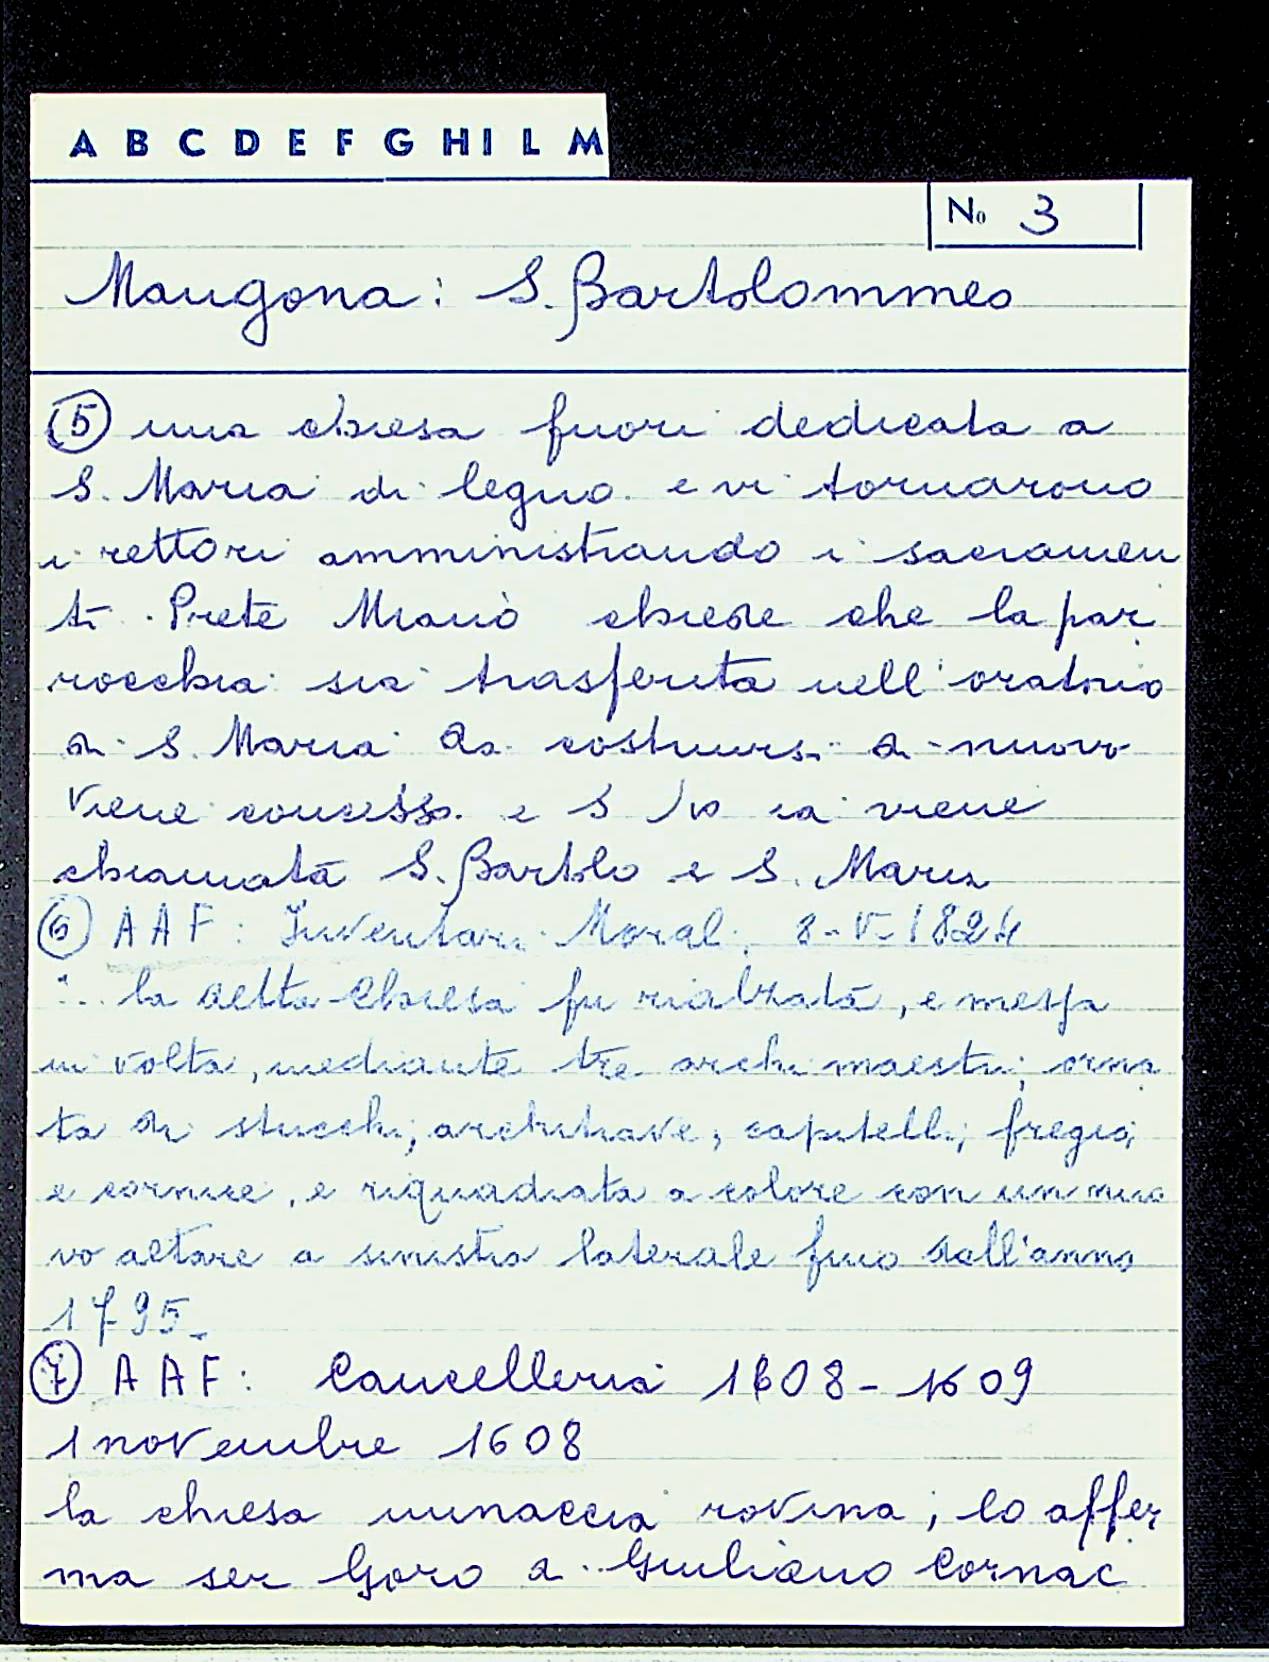 A B C D E F G H I L M
No 3
Mangona: S. Bartolommeo
5 una chiesa fuori dedicata a
S. Maria di legno e vi tornarono
i rettori amministrando i sacramen
ti. Prete chiede che la par
rocchia sia trasferita nell'oratorio
di S. Maria da costruirsi di nuovo
Viene concesso e S ia viene
chiamata S. Bartolo e S. Maria
6 AAF: Inventari Morali, 8-V-1824
"... la detta Chiesa fu rialzata, e messa
in volta, mediante tre archi maestri; orna
ta di stucchi; architrave, capitelli, fregio,
e cornice, e riquadrata a colore con un nuo
vo altare a sinistra laterale fino dall'anno
1795.
7 AAF: Cancelleria 1608-1609
1 novembre 1608
la chiesa minaccia rovina; lo affer
ma ser Goro di Giuliano Cornac